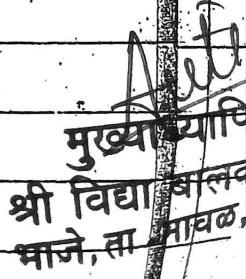 मुख्याध्यापि
श्री विद्या बालव
भाजे, ता मावळ,